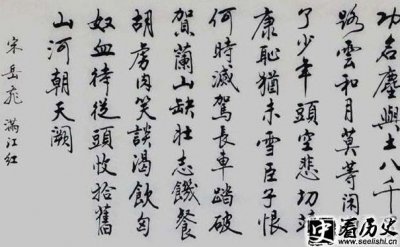 功名塵與土八千
路雲和月莫等闲
了少年頭空悲切靖
康恥猶未雪臣子恨
何時滅駕長車踏破
賀蘭山缺壮志饑餐
胡虏肉笑談渴飲匈
奴血待從頭收拾舊
山河朝天闕
宋岳飛 满江红
看历史
www.seelishi.cn